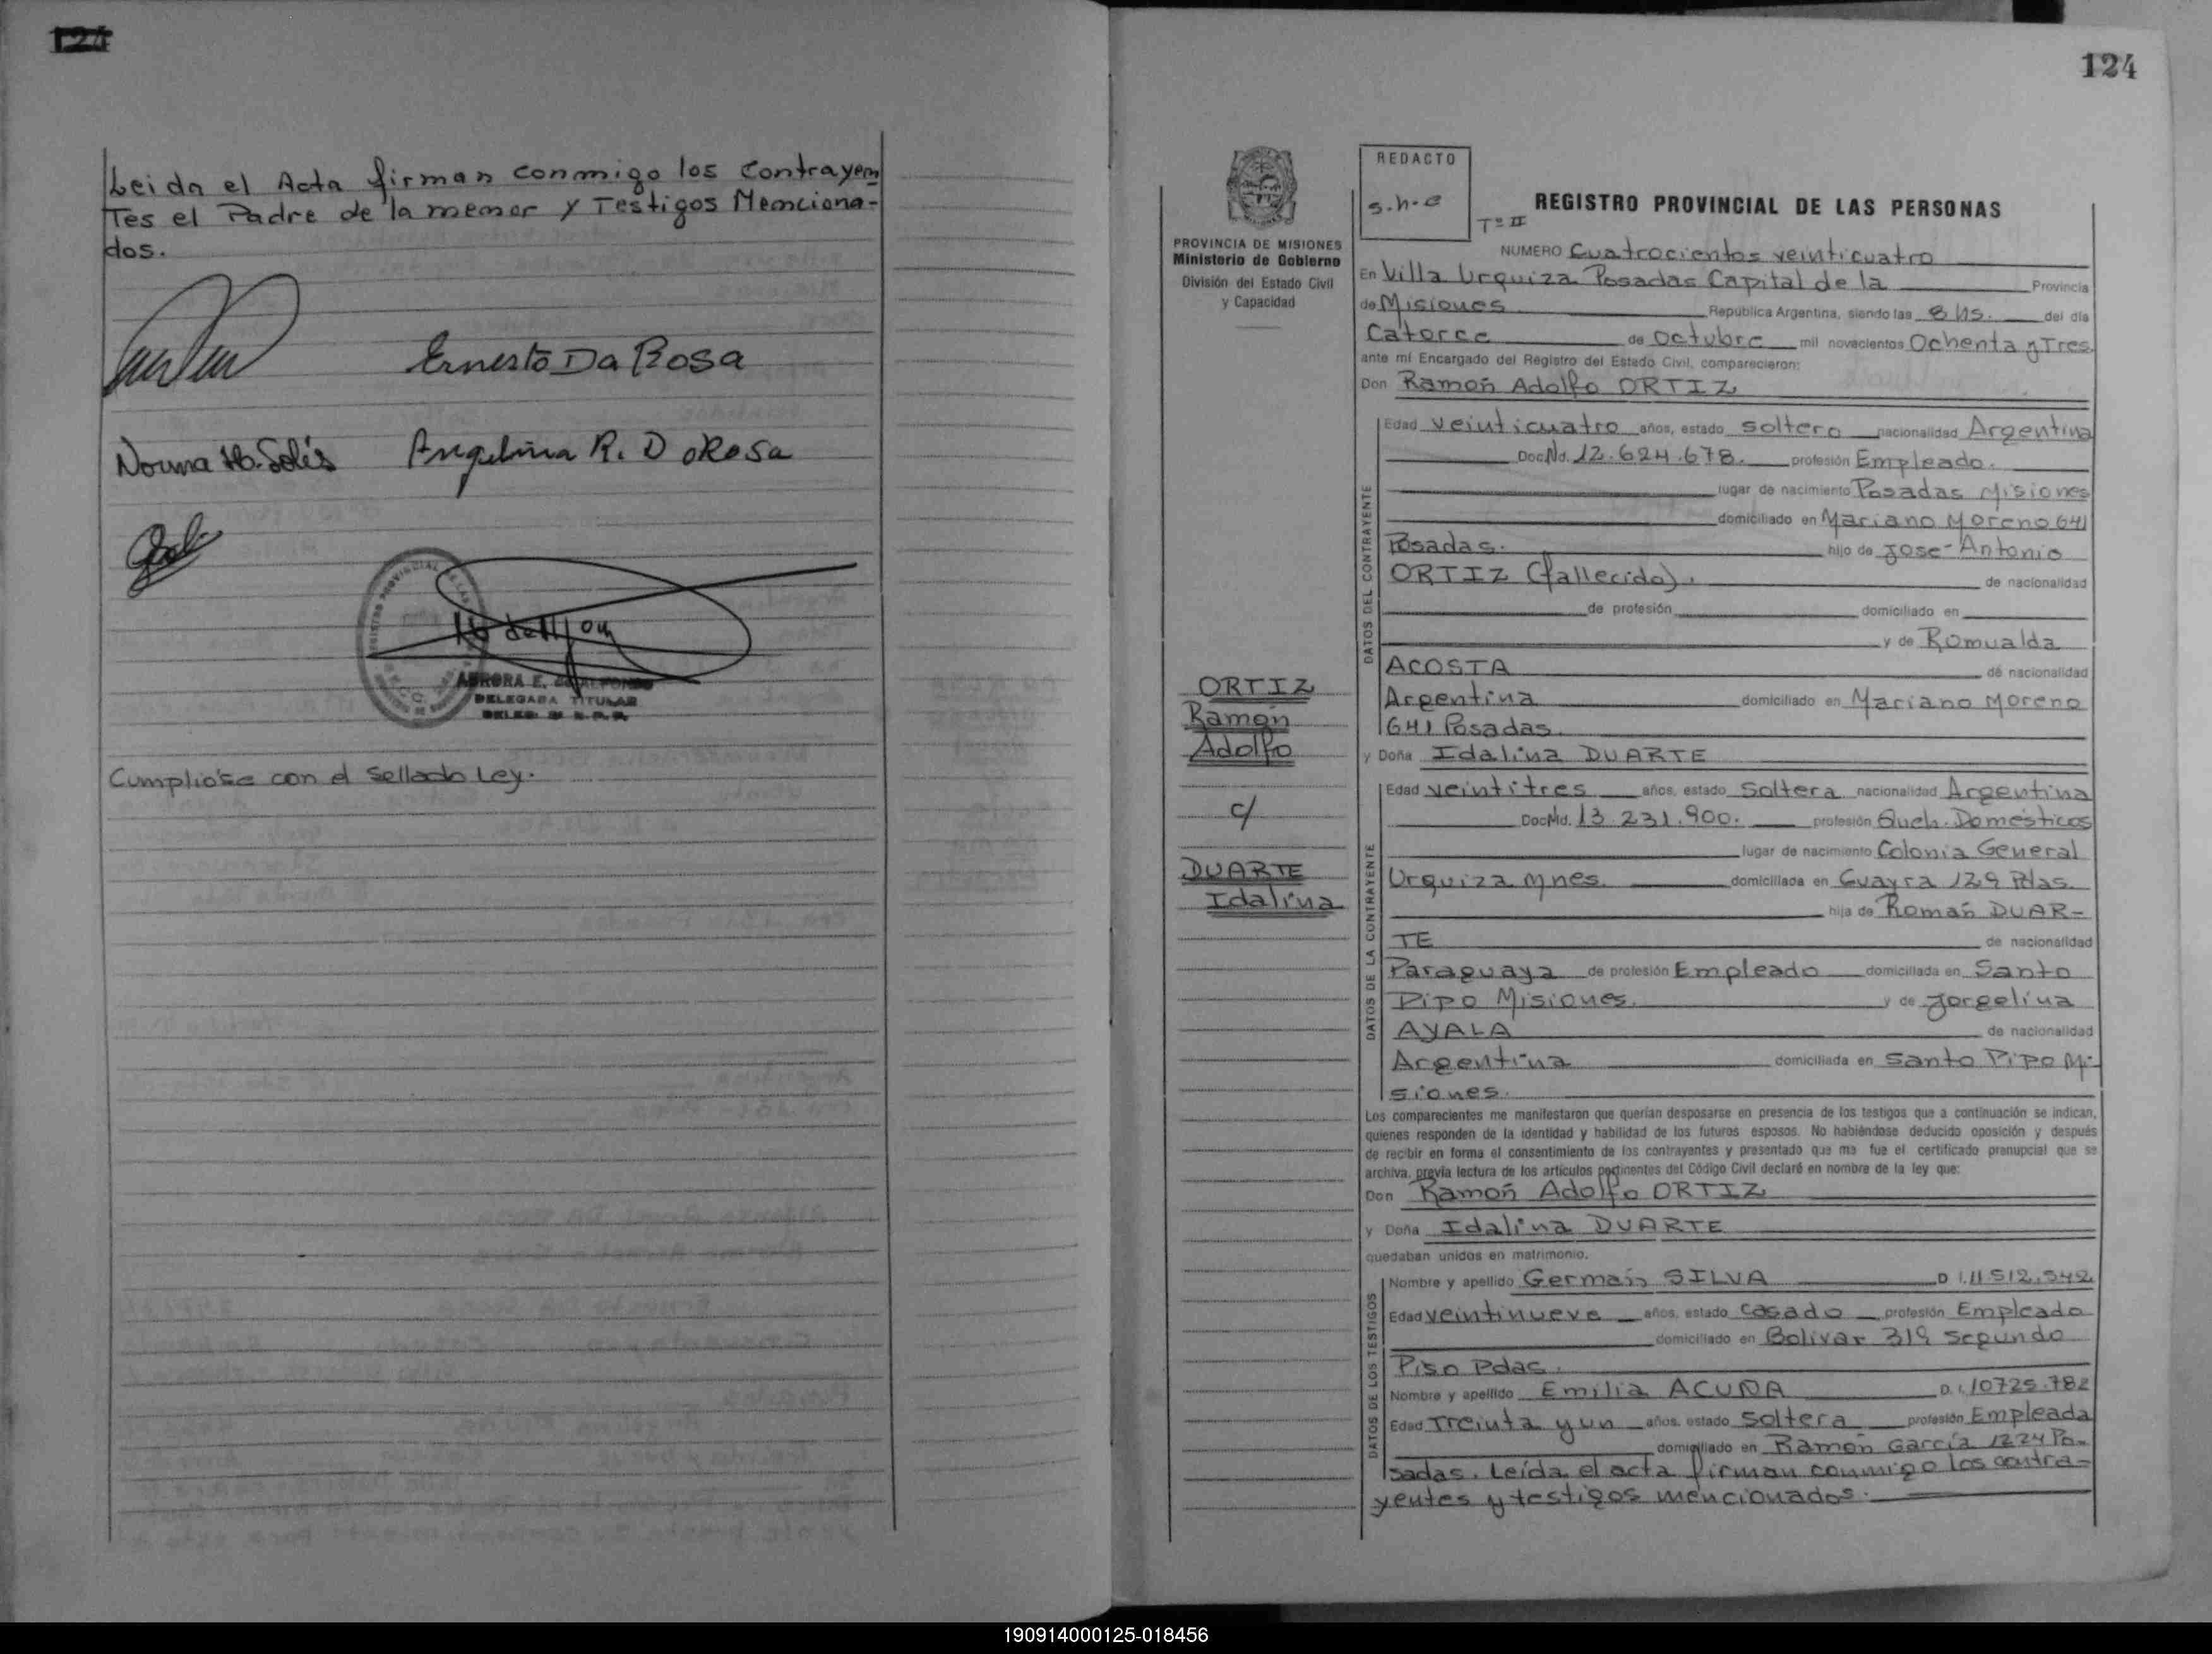 124
Leida el Acta firman conmigo los Contrayen
Tes el Padre de la menor y Testigos Menciona-
dos.
Ernesto Da Rosa
Norma Hb. Solis
Angelina R. D oRosa
AURORA E. de ALFONSO
DELEGADA TITULAR
Cumplióse con el Sellado Ley.
124
REDACTO
s.h-e
Tº II
REGISTRO PROVINCIAL DE LAS PERSONAS
PROVINCIA DE MISIONES
Ministerio de Gobierno
División del Estado Civil
y Capacidad
NUMERO Cuatrocientos veinticuatro
En Villa Urquiza Posadas Capital de la Provincia
de Misiones República Argentina, siendo las 8 hs. del día
Catorce de Octubre mil novecientos Ochenta y Tres
ante mí Encargado del Registro del Estado Civil, comparecieron:
Don Ramón Adolfo ORTIZ
DATOS DEL CONTRAYENTE
Edad veinticuatro años, estado soltero nacionalidad Argentina
Doc.Nd. 12.624.678. profesión Empleado.
lugar de nacimiento Posadas Misiones
domiciliado en Mariano Moreno 641
Posadas. hijo de Jose-Antonio
ORTIZ (fallecido). de nacionalidad
de profesión domiciliado en
y de Romualda
ACOSTA de nacionalidad
Argentina domiciliado en Mariano Moreno
641 Posadas.
y Doña Idalina DUARTE
ORTIZ
Ramón
Adolfo
c/
DUARTE
Idalina
DATOS DE LA CONTRAYENTE
Edad veintitres años, estado Soltera nacionalidad Argentina
Doc.Nd. 13.231.900. profesión Queh. Domésticos
lugar de nacimiento Colonia General
Urquiza Mnes. domiciliada en Guayra 129 Pdas.
hija de Román DUAR-
TE de nacionalidad
Paraguaya de profesión Empleado domiciliada en Santo
Pipo Misiones. y de Jorgelina
AYALA de nacionalidad
Argentina domiciliada en Santo Pipo Mi-
siones.
Los comparecientes me manifestaron que querían desposarse en presencia de los testigos que a continuación se indican,
quienes responden de la identidad y habilidad de los futuros esposos. No habiéndose deducido oposición y después
de recibir en forma el consentimiento de los contrayentes y presentado que me fue el certificado prenupcial que se
archiva, previa lectura de los artículos pertinentes del Código Civil declaré en nombre de la ley que:
Don Ramón Adolfo ORTIZ
y Doña Idalina DUARTE
quedaban unidos en matrimonio.
DATOS DE LOS TESTIGOS
Nombre y apellido Germán SILVA D.I. 11.512.542
Edad veintinueve años, estado casado profesión Empleado
domiciliado en Bolivar 319 segundo
Piso Pdas.
Nombre y apellido Emilia ACUÑA D.I. 10725.782
Edad Treinta y un años, estado Soltera profesión Empleada
domiciliado en Ramón García 1224 Po-
sadas. Leída el acta firman conmigo los contra-
yentes y testigos mencionados.
190914000125-018456